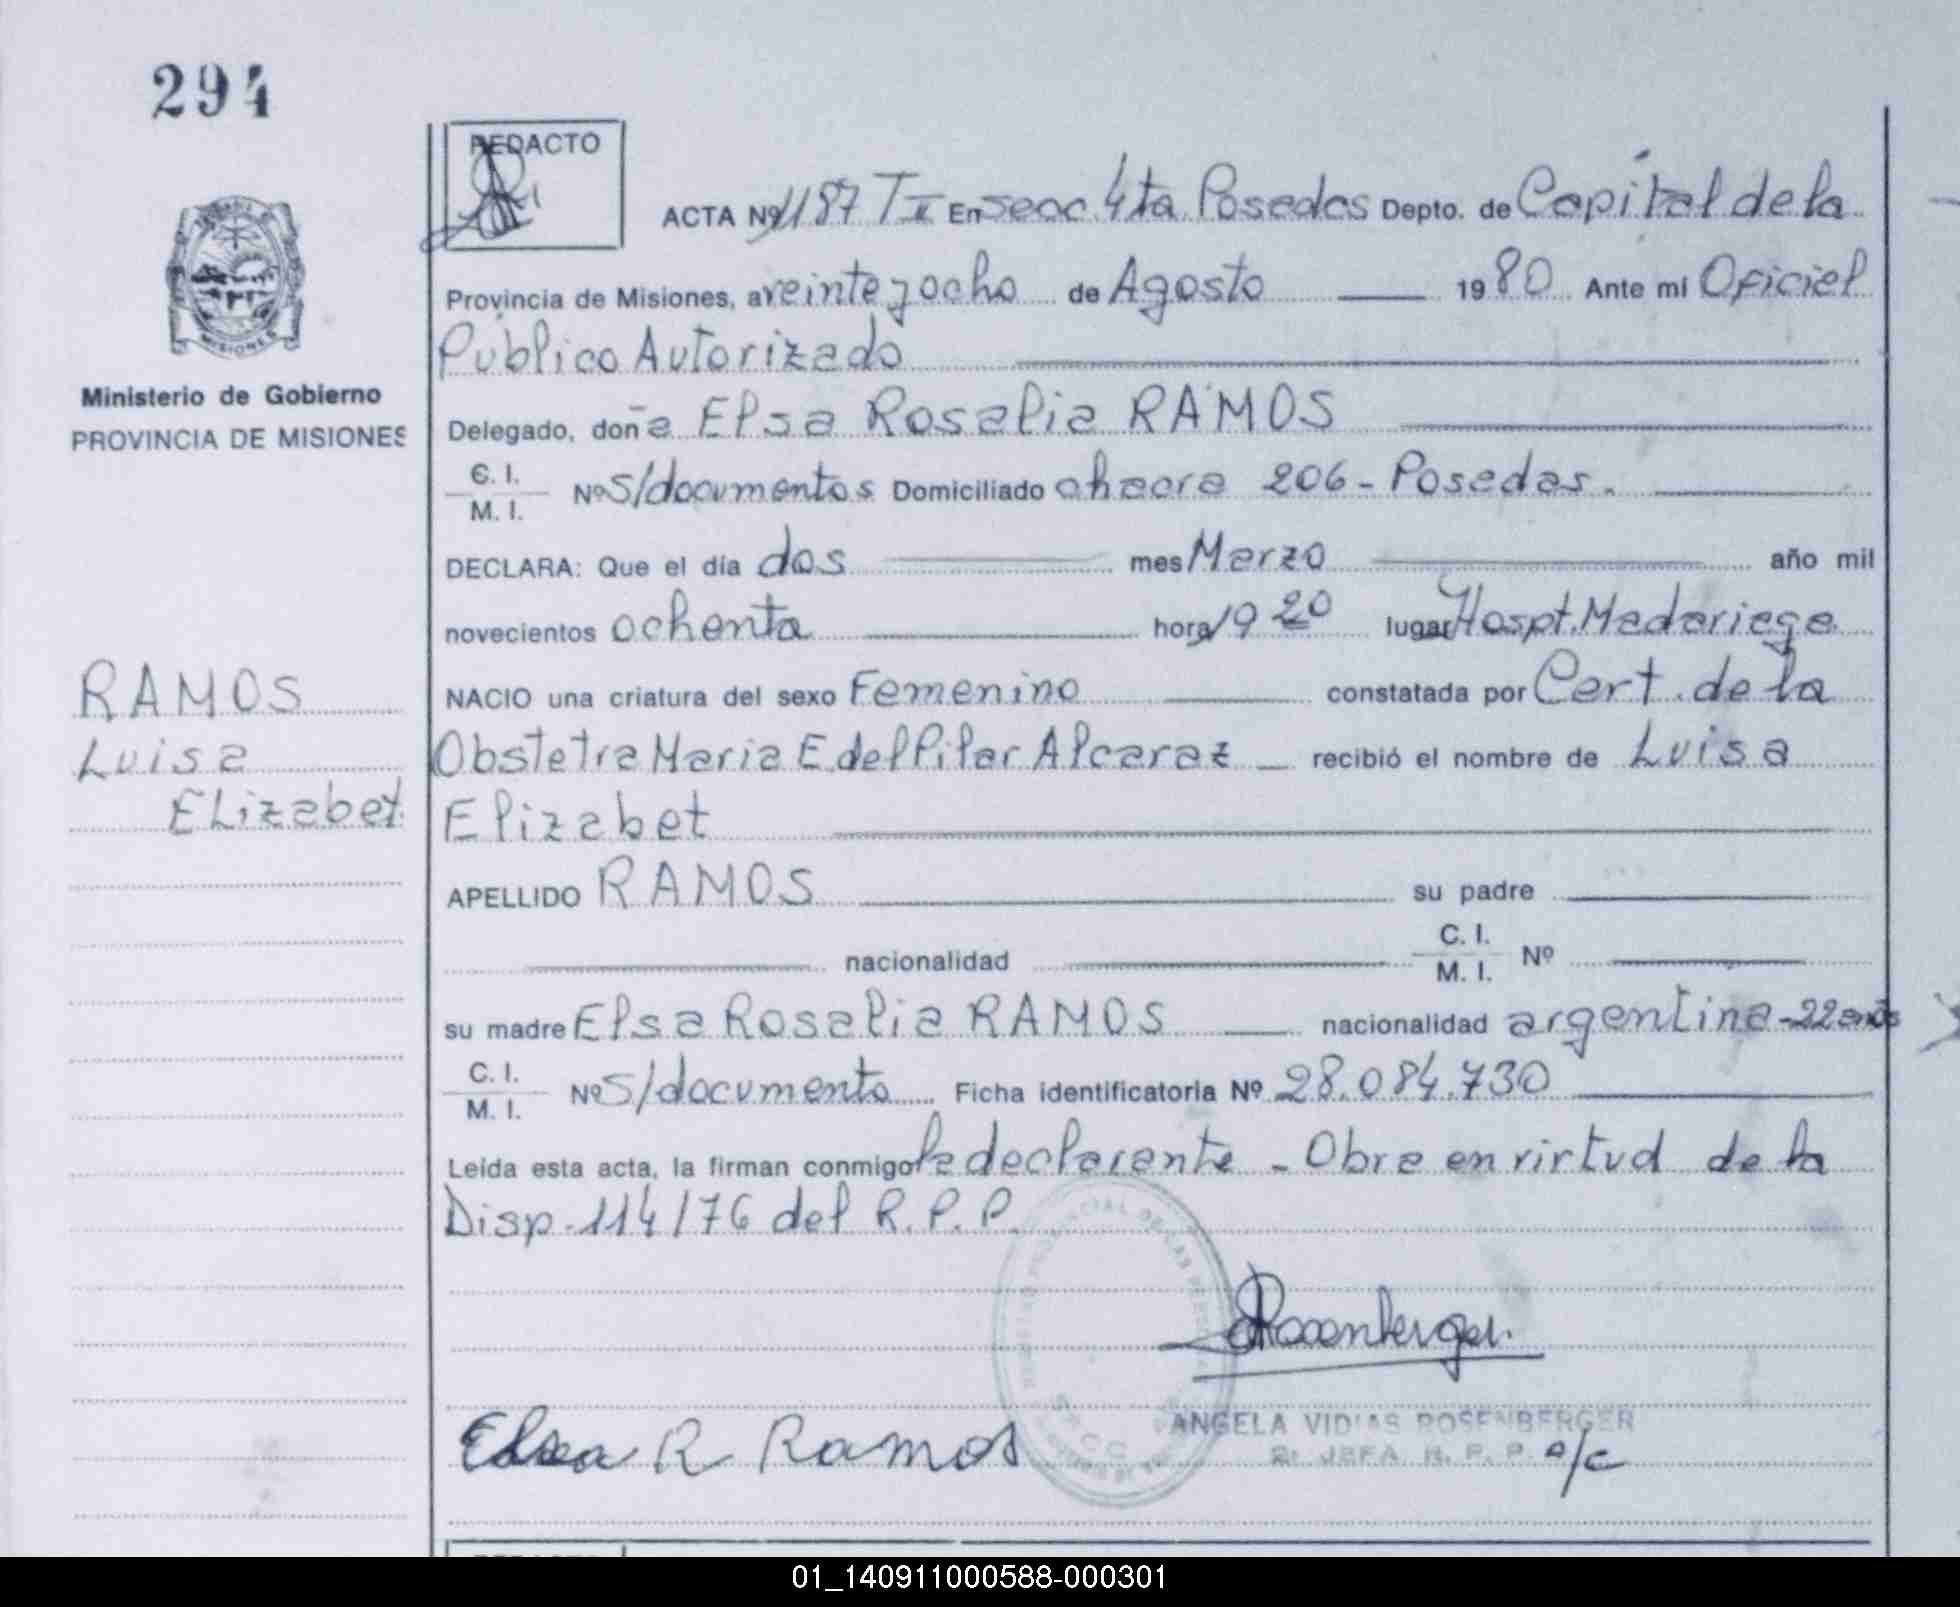 294
REDACTO
ACTA Nº 1187 T II En Secc 4ta Posadas Depto. de Capital de la
Provincia de Misiones, a veinte y ocho de Agosto 1980 Ante mi Oficial
Público Autorizado
Ministerio de Gobierno
PROVINCIA DE MISIONES
Delegado, doña Elsa Rosalia RAMOS
C. I.
M. I. Nº S/documentos Domiciliado chacra 206 - Posadas.
DECLARA: Que el día dos mes Marzo año mil
novecientos ochenta hora 19 20 lugar Hospt. Madariaga
RAMOS
Luisa
Elizabet
NACIO una criatura del sexo Femenino constatada por Cert. de la
Obstetra Maria E. del Pilar Alcaraz recibió el nombre de Luisa
Elizabet
APELLIDO RAMOS su padre
nacionalidad C. I.
M. I. Nº
su madre Elsa Rosalia RAMOS nacionalidad argentina - 22 años
C. I.
M. I. Nº S/documento Ficha identificatoria Nº 28.084.730
Leida esta acta, la firman conmigo la declarante - Obra en virtud de la
Disp. 114/76 del R.P.P.
Rosenberger
Elsa R Ramos
ANGELA VIDIAS ROSENBERGER
2: JEFA R. P. P. a/c
MISIONES
01_140911000588-000301